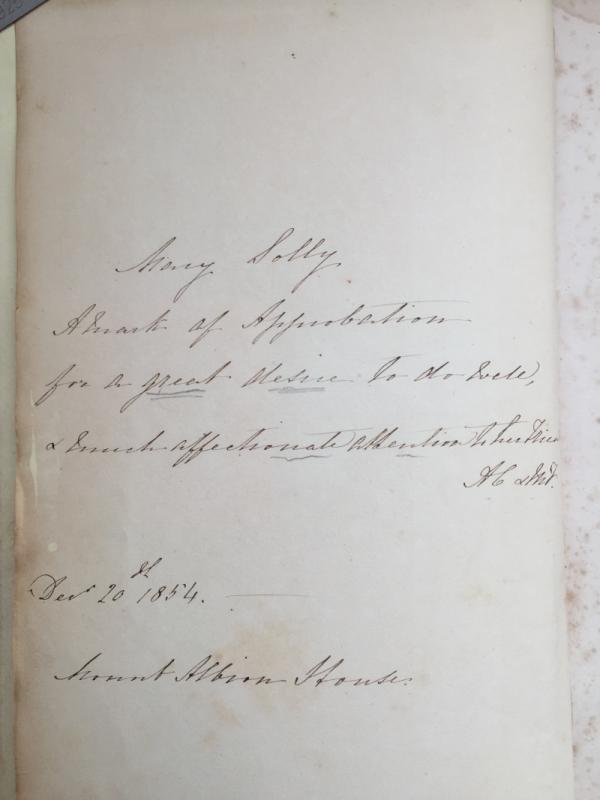 Mary Solly
A mark of Approbation
for a great desire to do well,
& much affectionate attention to her
Decr 20th 1854.
Mount Albion House.